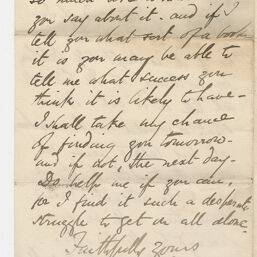 you say about it. and if I
tell you what sort of a book
it is you may be able to
tell me what success you
think it is likely to have -
I shall take my chance
of finding you tomorrow -
and if not, the next day -
Do help me if you can,
for I find it such a desperate
struggle to get on all alone.
Faithfully yours